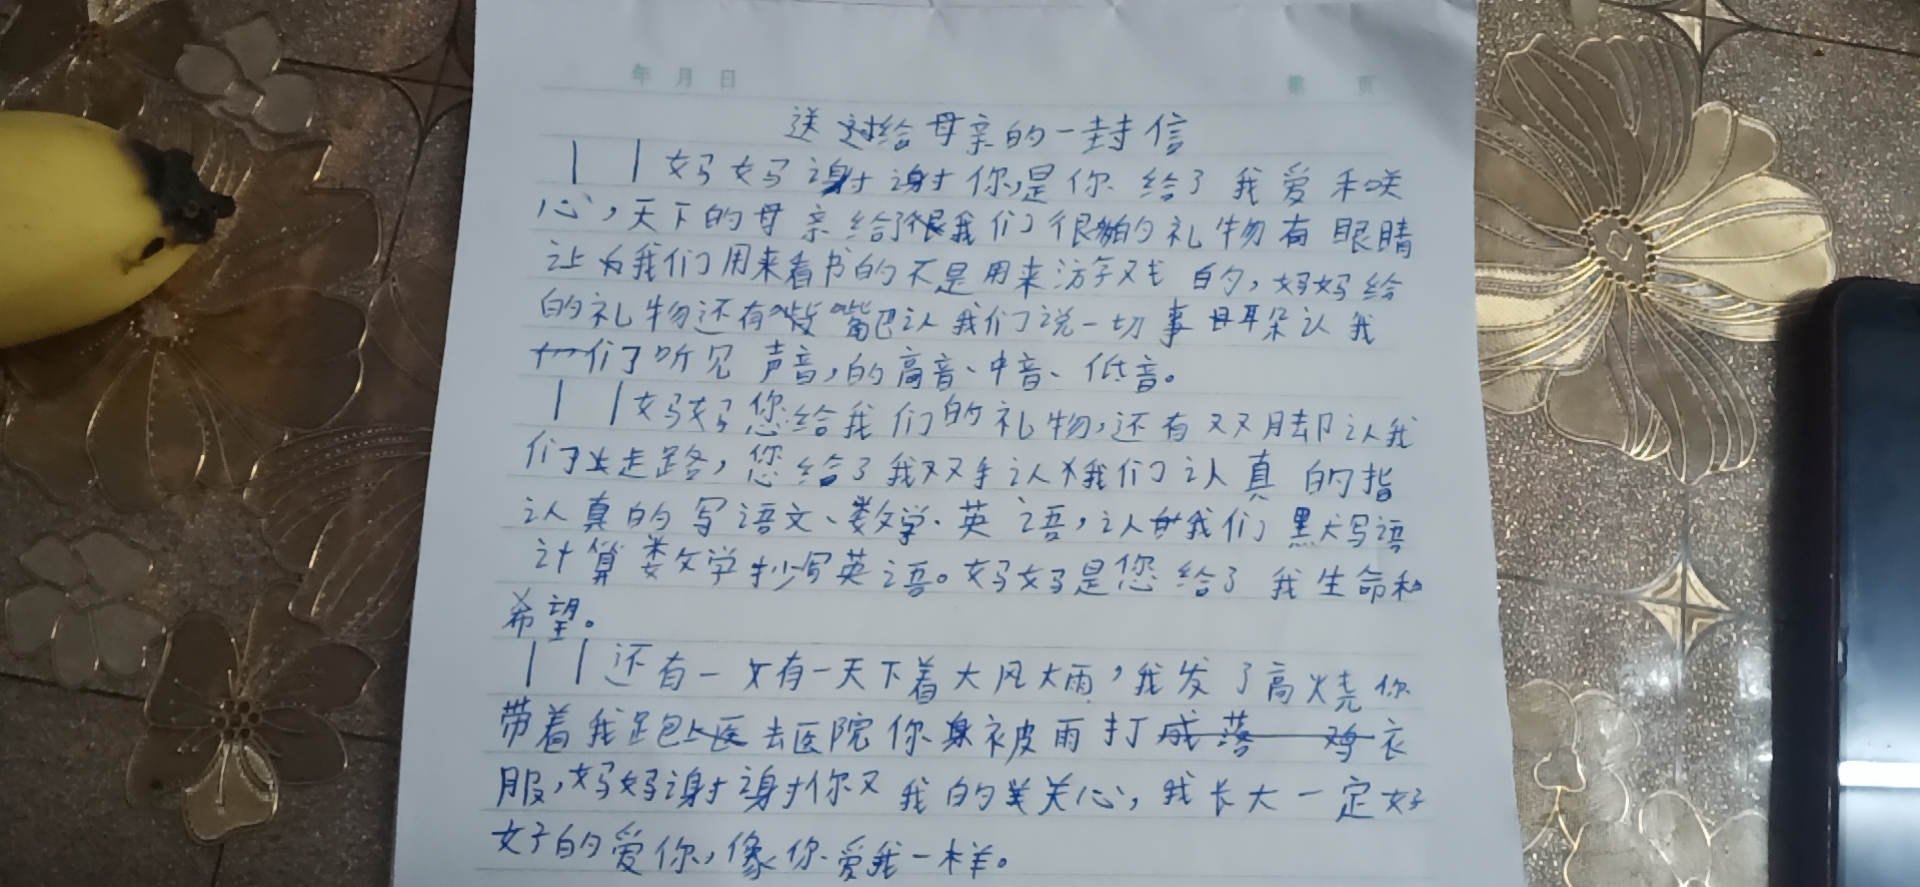 年 月 日 第 页
送给母亲的一封信
妈妈谢谢你,是你给了我爱和
心,天下的母亲给了我们很的礼物有眼睛
让我们用来看书的不是用来游戏的,妈妈给
的礼物还有嘴巴认我们说一切事耳朵认我
们了听见声音,的高音、中音、低音。
妈妈您给我们的礼物,还有双双脚认我
们走路,您给了我双双手认我们认真的指
认真的写语文、数学、英语,认我们默写语
计算数学抄写英语。妈妈是您给了我生命和
希望。
还有一次有一天下着大风大雨,我发了高烧你
带着我跑去医院你身被雨打成落 鸡衣
服,妈妈谢谢你又我的关心,我长大一定好
好的爱你,像你爱我一样。